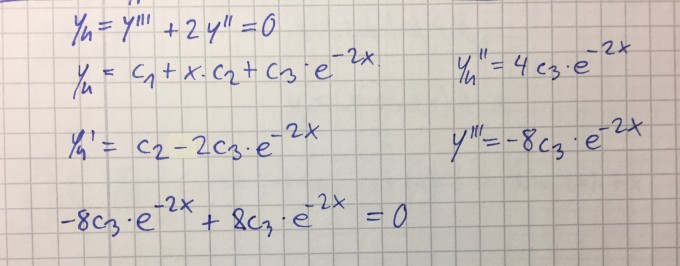 yₕ = y''' + 2y'' = 0
yₕ = c₁ + x · c₂ + c₃ · e^{-2x}
yₕ'' = 4c₃ · e^{-2x}
yₕ' = c₂ - 2c₃ · e^{-2x}
y''' = -8c₃ · e^{-2x}
-8c₃ · e^{-2x} + 8c₃ · e^{-2x} = 0